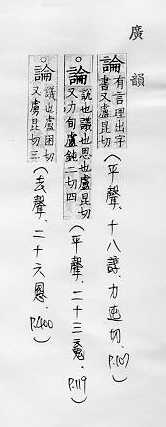 廣韻
論 有言理出字書又盧昆切 (平聲、十八諄、力迍切、P.107)
論 說也議也思也盧昆切又力旬盧鈍二切四 (平聲、二十三魂、P.119)
論 議也盧困切又虜昆切三 (去聲、二十六慁、P.400)